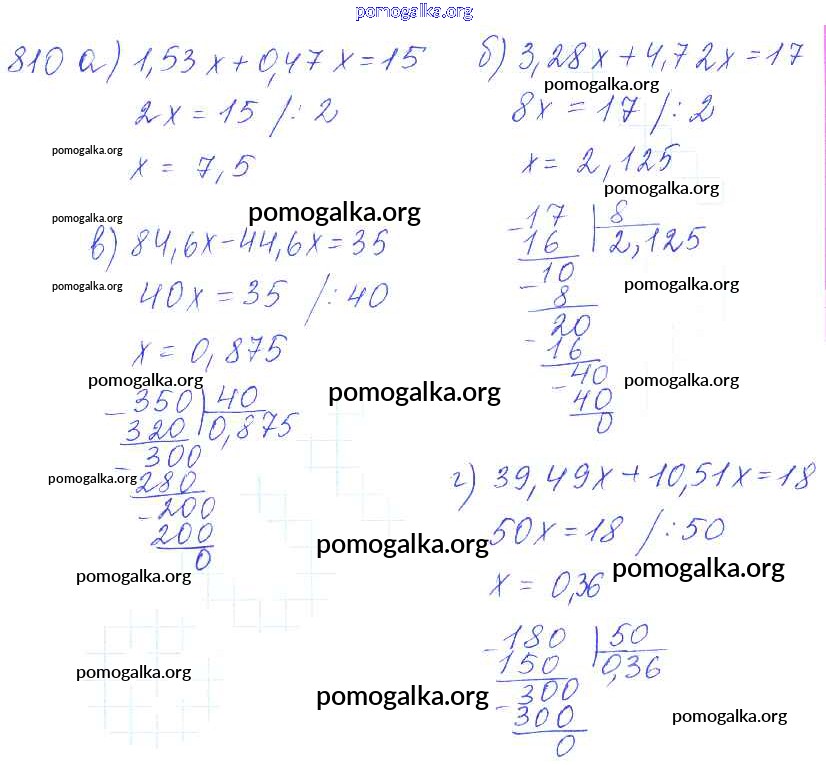 pomogalka.org
810 а) 1,53x + 0,47x = 15
2x = 15 /: 2
pomogalka.org
x = 7,5
б) 3,28x + 4,72x = 17
pomogalka.org
8x = 17 /: 2
x = 2,125
pomogalka.org
- 17 | 8
16 | 2,125
10
pomogalka.org
- 8
20
- 16
- 40
pomogalka.org
40
0
pomogalka.org
pomogalka.org
в) 84,6x - 44,6x = 35
pomogalka.org
40x = 35 /: 40
x = 0,875
pomogalka.org
pomogalka.org
- 350 | 40
320 | 0,875
- 300
pomogalka.org
280
- 200
200
0
pomogalka.org
pomogalka.org
г) 39,49x + 10,51x = 18
50x = 18 /: 50
pomogalka.org
x = 0,36
- 180 | 50
150 | 0,36
- 300
300
0
pomogalka.org
pomogalka.org
pomogalka.org